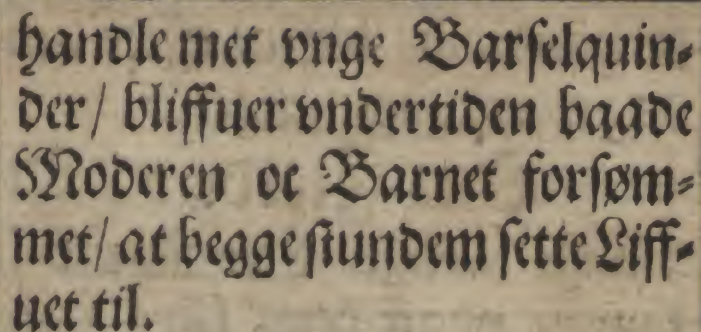 handle met vnge Barselquin⸗
der/ bliffuer vndertiden baade
Moderen oc Barnet forsøm⸗
met/ at begge stundem sette Liff⸗
uet til.